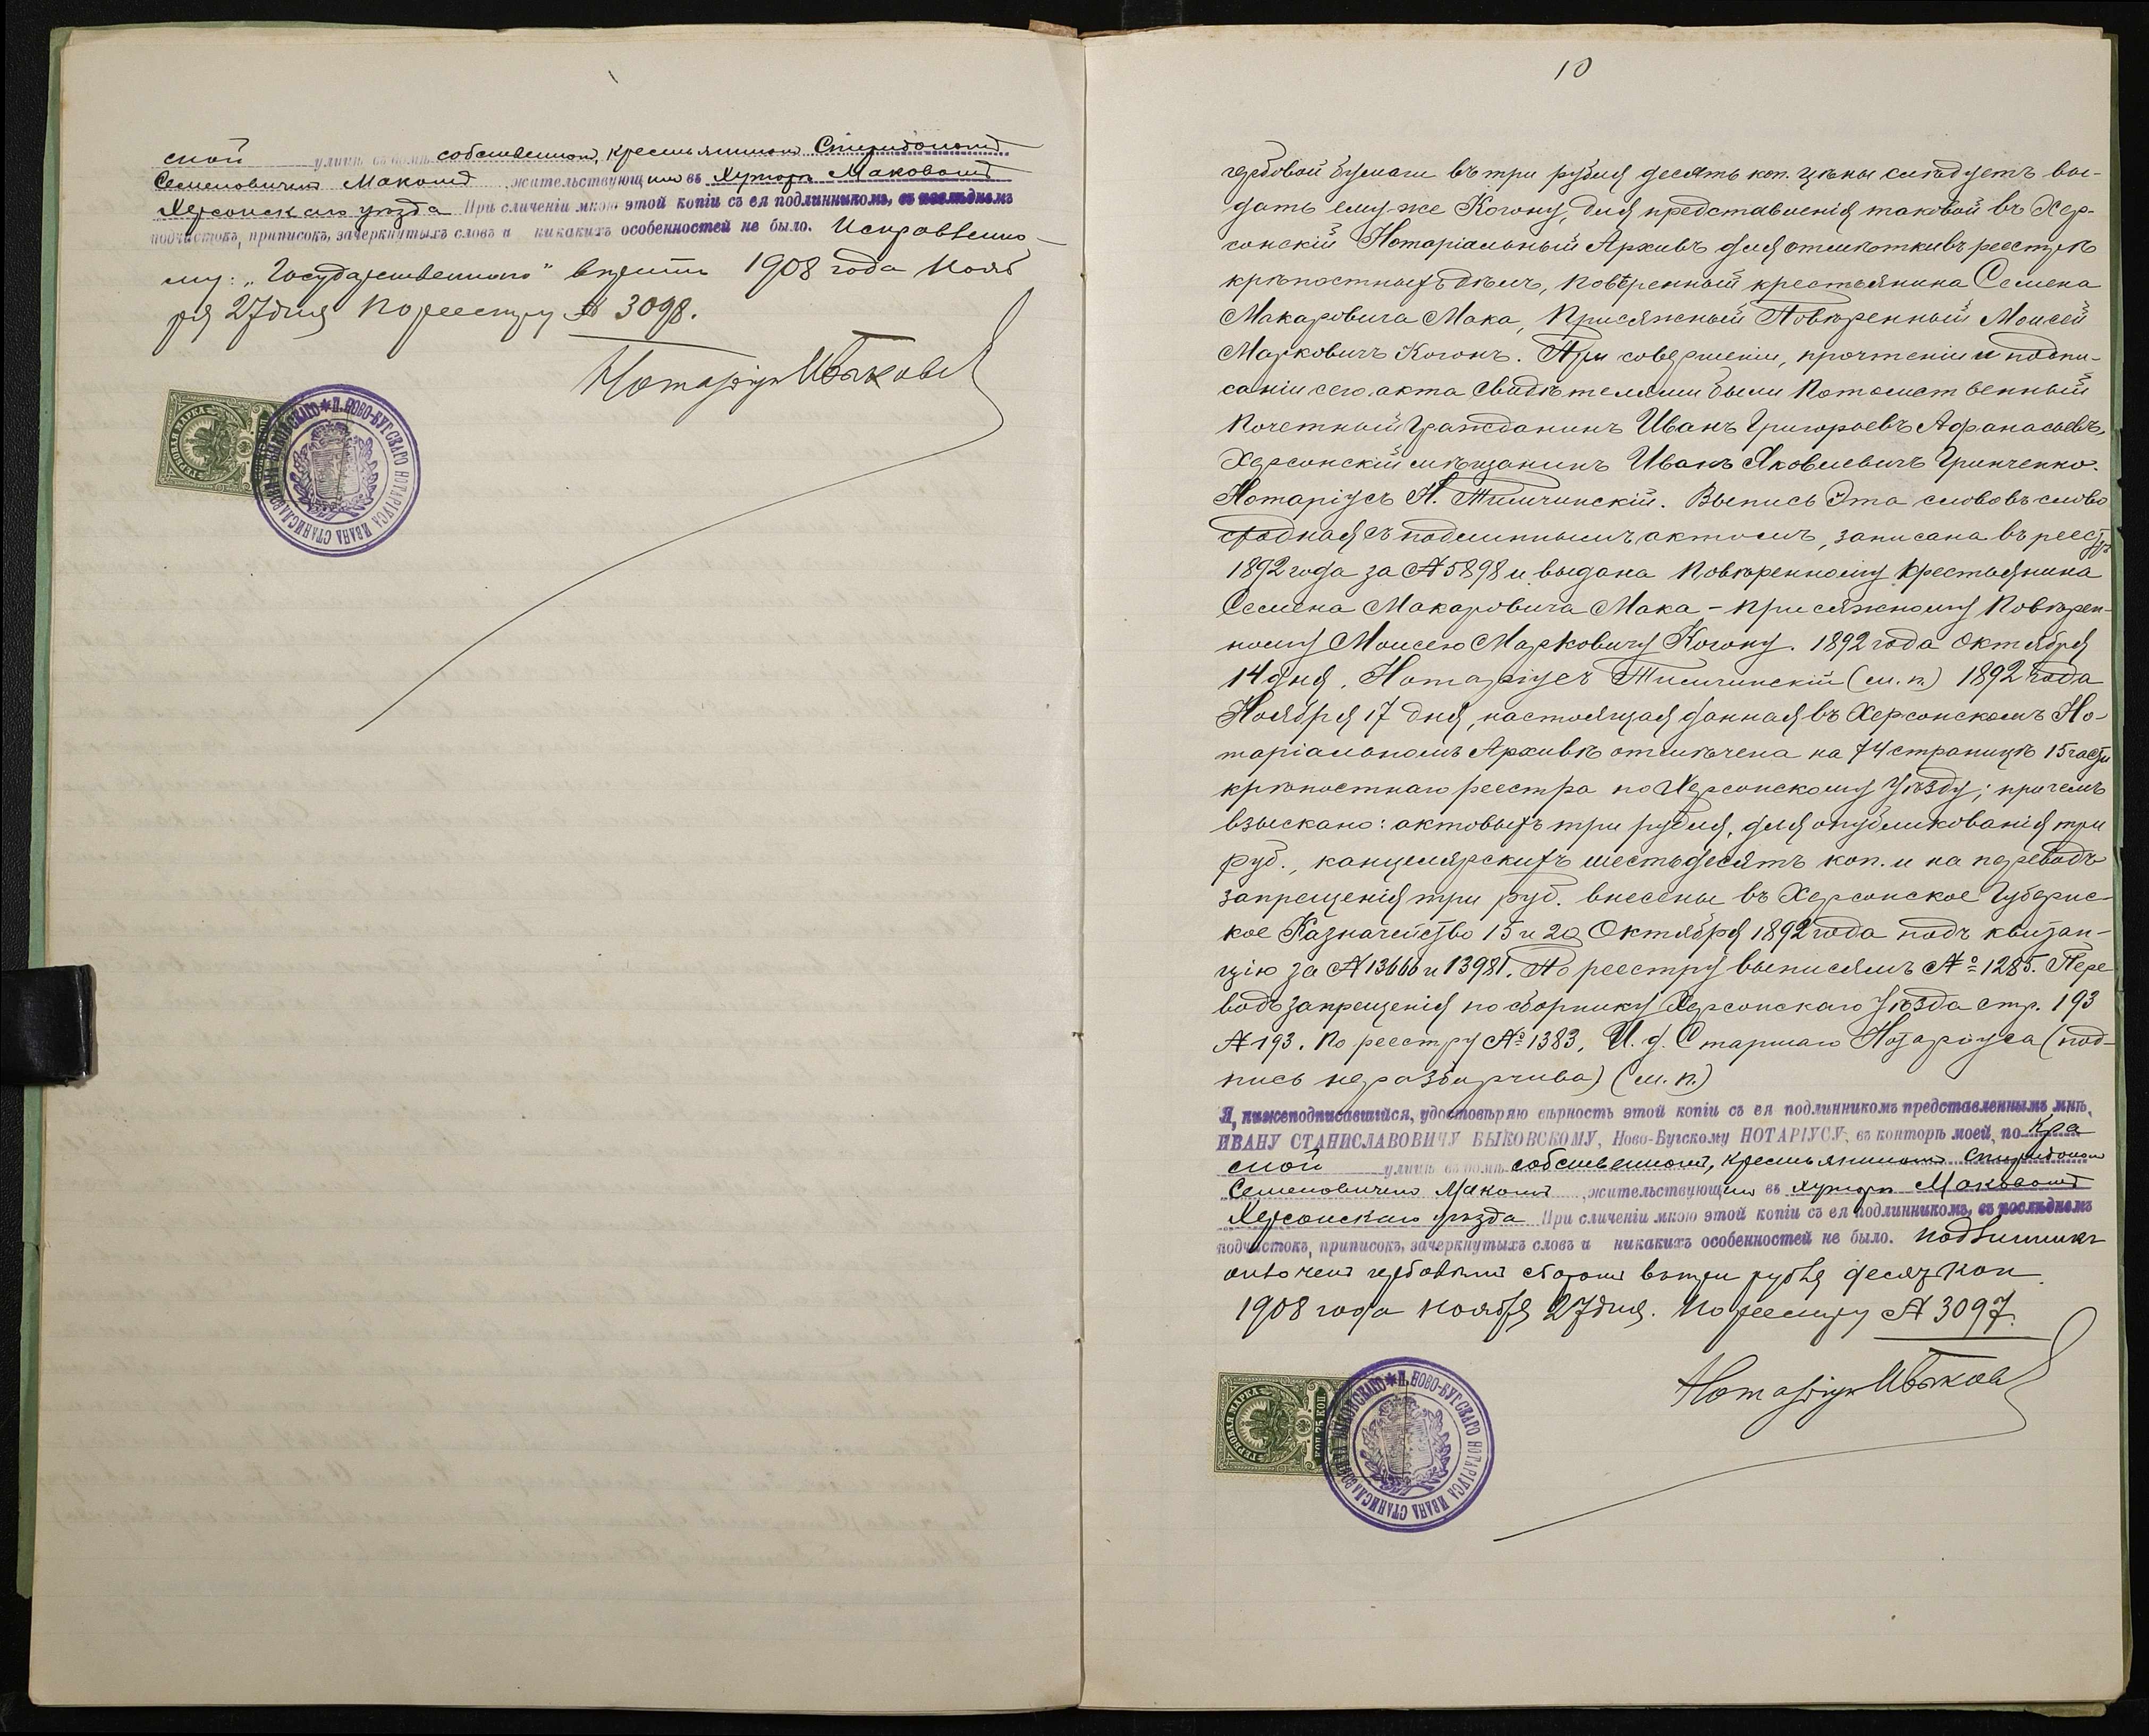 ской улицѣ въ домѣ собственномъ, крестьяниномъ Спиридономъ
Семеновичемъ Макомъ жительствующимъ въ хуторѣ Маковомъ
Херсонскаго уѣзда При сличеніи мною этой копіи съ ея подлинникомъ, въ послѣднемъ
подчистокъ, приписокъ, зачеркнутыхъ словъ и никакихъ особенностей не было. Исправленно-
му: „Государственнаго" вѣрить 1908 года Нояб
ря 27 дня По реестру № 3098.
Нотаріусъ ИБыковск
ГЕРБОВАЯ МАРКА
П. НОВО-БУГСКАГО НОТАРІУСА ИВАНА СТАНИСЛАВОВИЧА БЫКОВСКАГО
10
гербовой бумаги въ три рубля десять коп. цѣны слѣдуетъ вы-
дать ему же Когону, для представленія таковой въ Хер-
сонскій Нотаріальный Архивъ для отмѣтки въ реестрѣ
крѣпостныхъ дѣлъ, повѣренный крестьянина Семена
Макаровича Мака, Присяжный Повѣренный Моисей
Марковичъ Когонъ. При совершеніи, прочтеніи и подпи-
саніи сего акта Свидѣтелями были Потомственный
Почетный Гражданинъ Иванъ Григорьевъ Афанасьевъ,
Херсонскій мѣщанинъ Иванъ Яковлевичъ Гринченко.
Нотаріусъ Н. Тимчинскій. Выпись Эта слово въ слово
сходная съ подлиннымъ актомъ, записана въ реестръ
1892 года за № 5898 и выдана Повѣренному Крестьянина
Семена Макаровича Мака - присяжному Повѣрен-
ному Моисею Марковичу Когону. 1892 года Октября
14 дня. Нотаріусъ Тимчинскій (м. п.) 1892 года
Ноября 17 дня, настоящая данная въ Херсонскомъ Но-
таріальномъ Архивѣ отмѣчена на 74 страницѣ 15 части
крѣпостнаго реестра по Херсонскому Уѣзду; причемъ
взыскано: актовыхъ три рубля, для опубликованія три
руб., канцелярскихъ шестьдесятъ коп. и на переводъ
запрещенія три руб. внесены въ Херсонское Губернс-
кое Казначейство 15 и 20 Октября 1892 года подъ квитан-
цію за № 13666 и 13981. По реестру выписямъ № 1285. Пере
водъ запрещенія по сборнику Херсонскаго Уѣзда стр. 193
№ 193. По реестру № 1383, И. д. Старшаго Нотаріуса (под-
пись неразборчива) (м. п.)
Я, нижеподписавшійся, удостовѣряю вѣрность этой копіи съ ея подлинникомъ представленнымъ мнѣ,
ИВАНУ СТАНИСЛАВОВИЧУ БЫКОВСКОМУ, Ново-Бугскому НОТАРІУСУ, въ конторѣ моей, по Кра
сной улицѣ въ домѣ собственномъ, крестьяниномъ Спиридономъ
Семеновичемъ Макомъ жительствующимъ въ хуторѣ Маковомъ
Херсонскаго уѣзда При сличеніи мною этой копіи съ ея подлинникомъ, въ послѣднемъ
подчистокъ, приписокъ, зачеркнутыхъ словъ и никакихъ особенностей не было. Подлинникъ
оплоченъ гербовымъ сборомъ въ три рубля десять коп.
1908 года Ноября 27 дня. По реестру № 3097.
Нотаріусъ ИБыковск
ГЕРБОВАЯ МАРКА
КОП 75 КОП
П. НОВО-БУГСКАГО НОТАРІУСА ИВАНА СТАНИСЛАВОВИЧА БЫКОВСКАГО